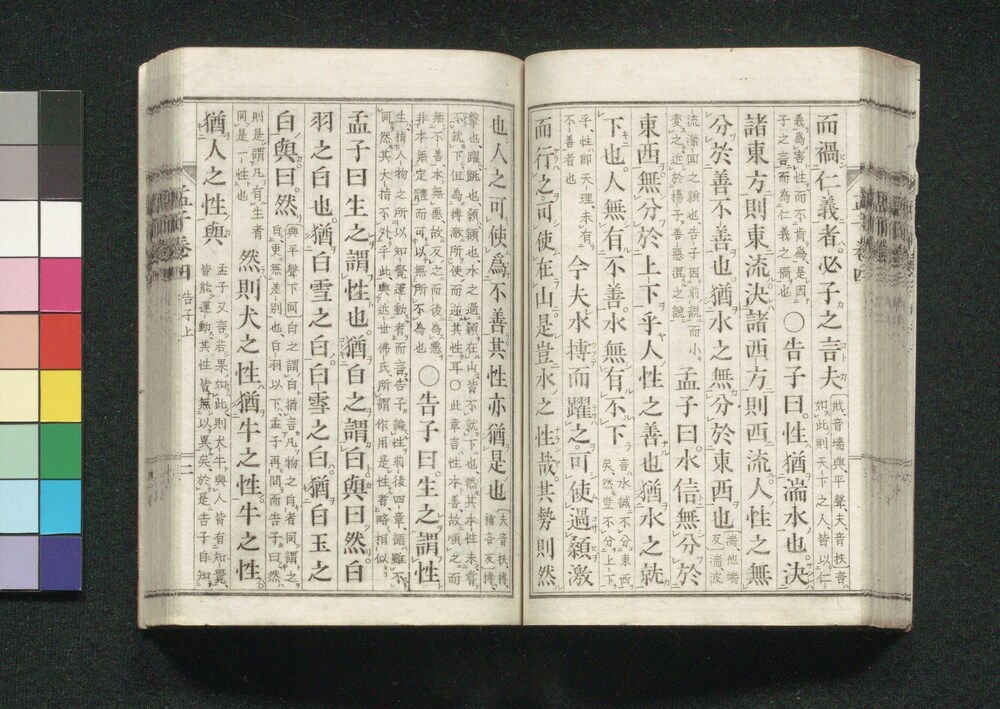 而禍仁義者必子之言夫戕音牆與平聲夫音扶言如此則天下之人皆以仁
義爲害性而不肯爲是因子之言而為仁義之禍也〇告子曰性猶湍水也決
諸東方則東流決諸西方則西流人性之無
分於善不善也猶水之無分於東西也湍他端反湍波
流瀠回之貌也告子因前說而小變之近於揚子善惡混之說孟子曰水信無分於
東西無分於上下乎人性之善也猶水之就
下也人無有不善水無有不下言水誠不分東西矣然豈不分上下
乎性即天理未有不善者也今夫水搏而躍之可使過顙激
而行之可使在山是豈水之性哉其勢則然
也人之可使爲不善其性亦猶是也夫音扶搏補各反搏
擊也躍跳也顙額也水之過額在山皆不就下也然其本性未嘗不就下但為搏激所使而逆其性耳〇此章言性本善故順之而
無不善本無惡故反之而後為惡非本無定體而可以無所不為也〇告子曰生之謂性
生指人物之所以知覺運動者而言告子論性前後四章語雖不同然其大指不外乎此與近世佛氏所謂作用是性者略相似
孟子曰生之謂性也猶白之謂白與曰然白
羽之白也猶白雪之白白雪之白猶白玉之
白與曰然與平聲下同白之謂白猶言凡物之白者同謂之白更無差別也白羽以下孟子再問而告子曰然
則是謂凡有生者同是一性也然則犬之性猶牛之性牛之性
猶人之性與孟子又言若果如此則犬牛與人皆有知覺皆能運動其性皆無以異矣於是告子自知
孟子卷四
告子上
二
孟子卷四